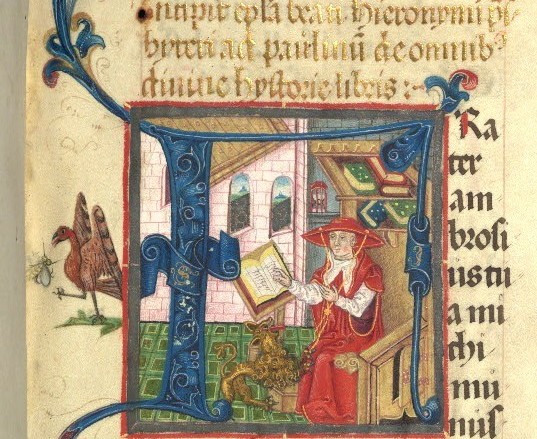 Incipit epla beati Hieronymi
byteri ad paulinū de omnib⁹
divine hystorie libris :~
F
Ra
ter
am
brosi
us tu
a mi
chi
mu
nus